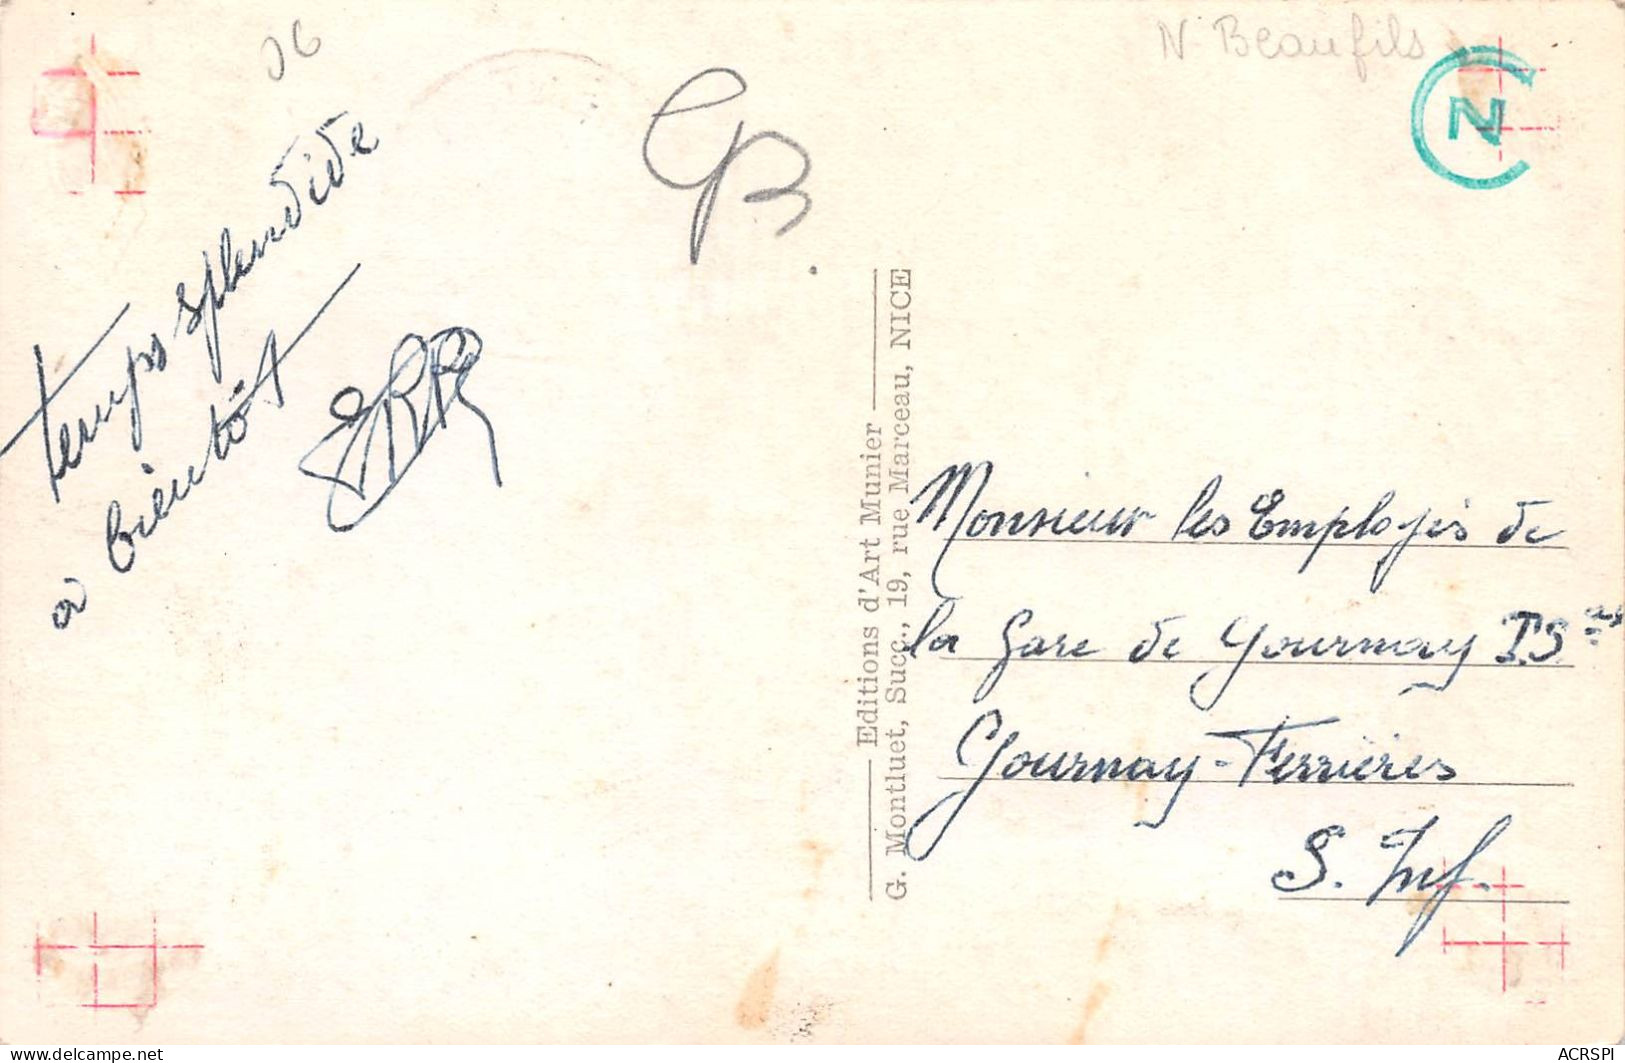 06
N. Beaufils
N
GB.
temps splendide
a bientôt
Editions d'Art Munier
G. Montluet, Succ., 19, rue Marceau, NICE
Monsieur les Employés de
la Gare de Gournay
Gournay-Ferrières
S. Inf.
delcampe.net
ACRSPI